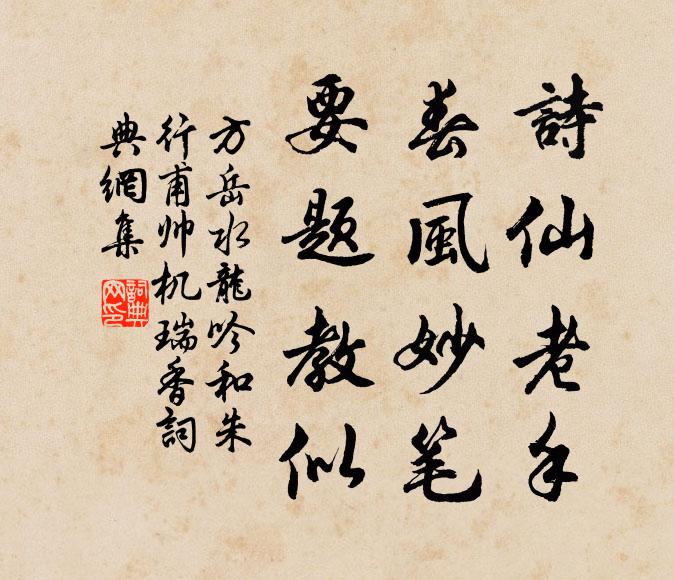 詩仙老手
春風妙笔
要題教似
方岳水龍吟和朱
行甫帅机瑞香詞
典網集
詞典網印